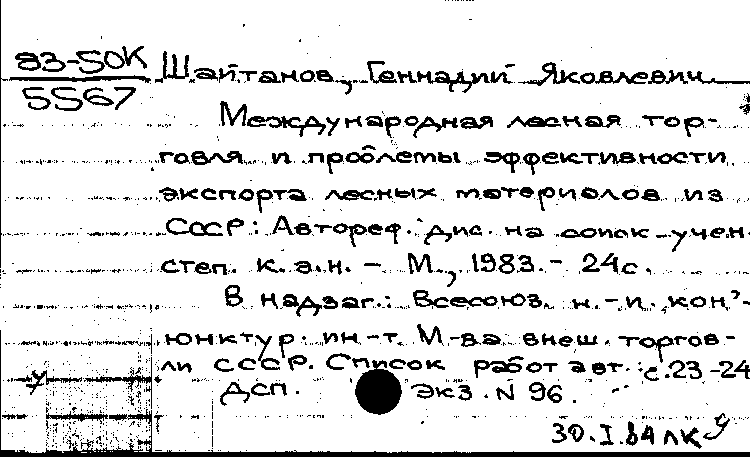 83-50К
5567
Шайтанов, Геннадий Яковлевич
Международная лесная тор-
говля и проблемы эффективности
экспорта лесных материалов из
СССР: Автореф. дис. на соиск. учен
степ. к.э.н. - М., 1983. - 24с.
В надзаг.: Всесоюз. н.-и. конъ-
юнктур. ин-т. М-ва внеш. торгов-
ли СССР. Список работ авт.: с.23-24
ДСП. Экз. N 96.
30.I.84 лк